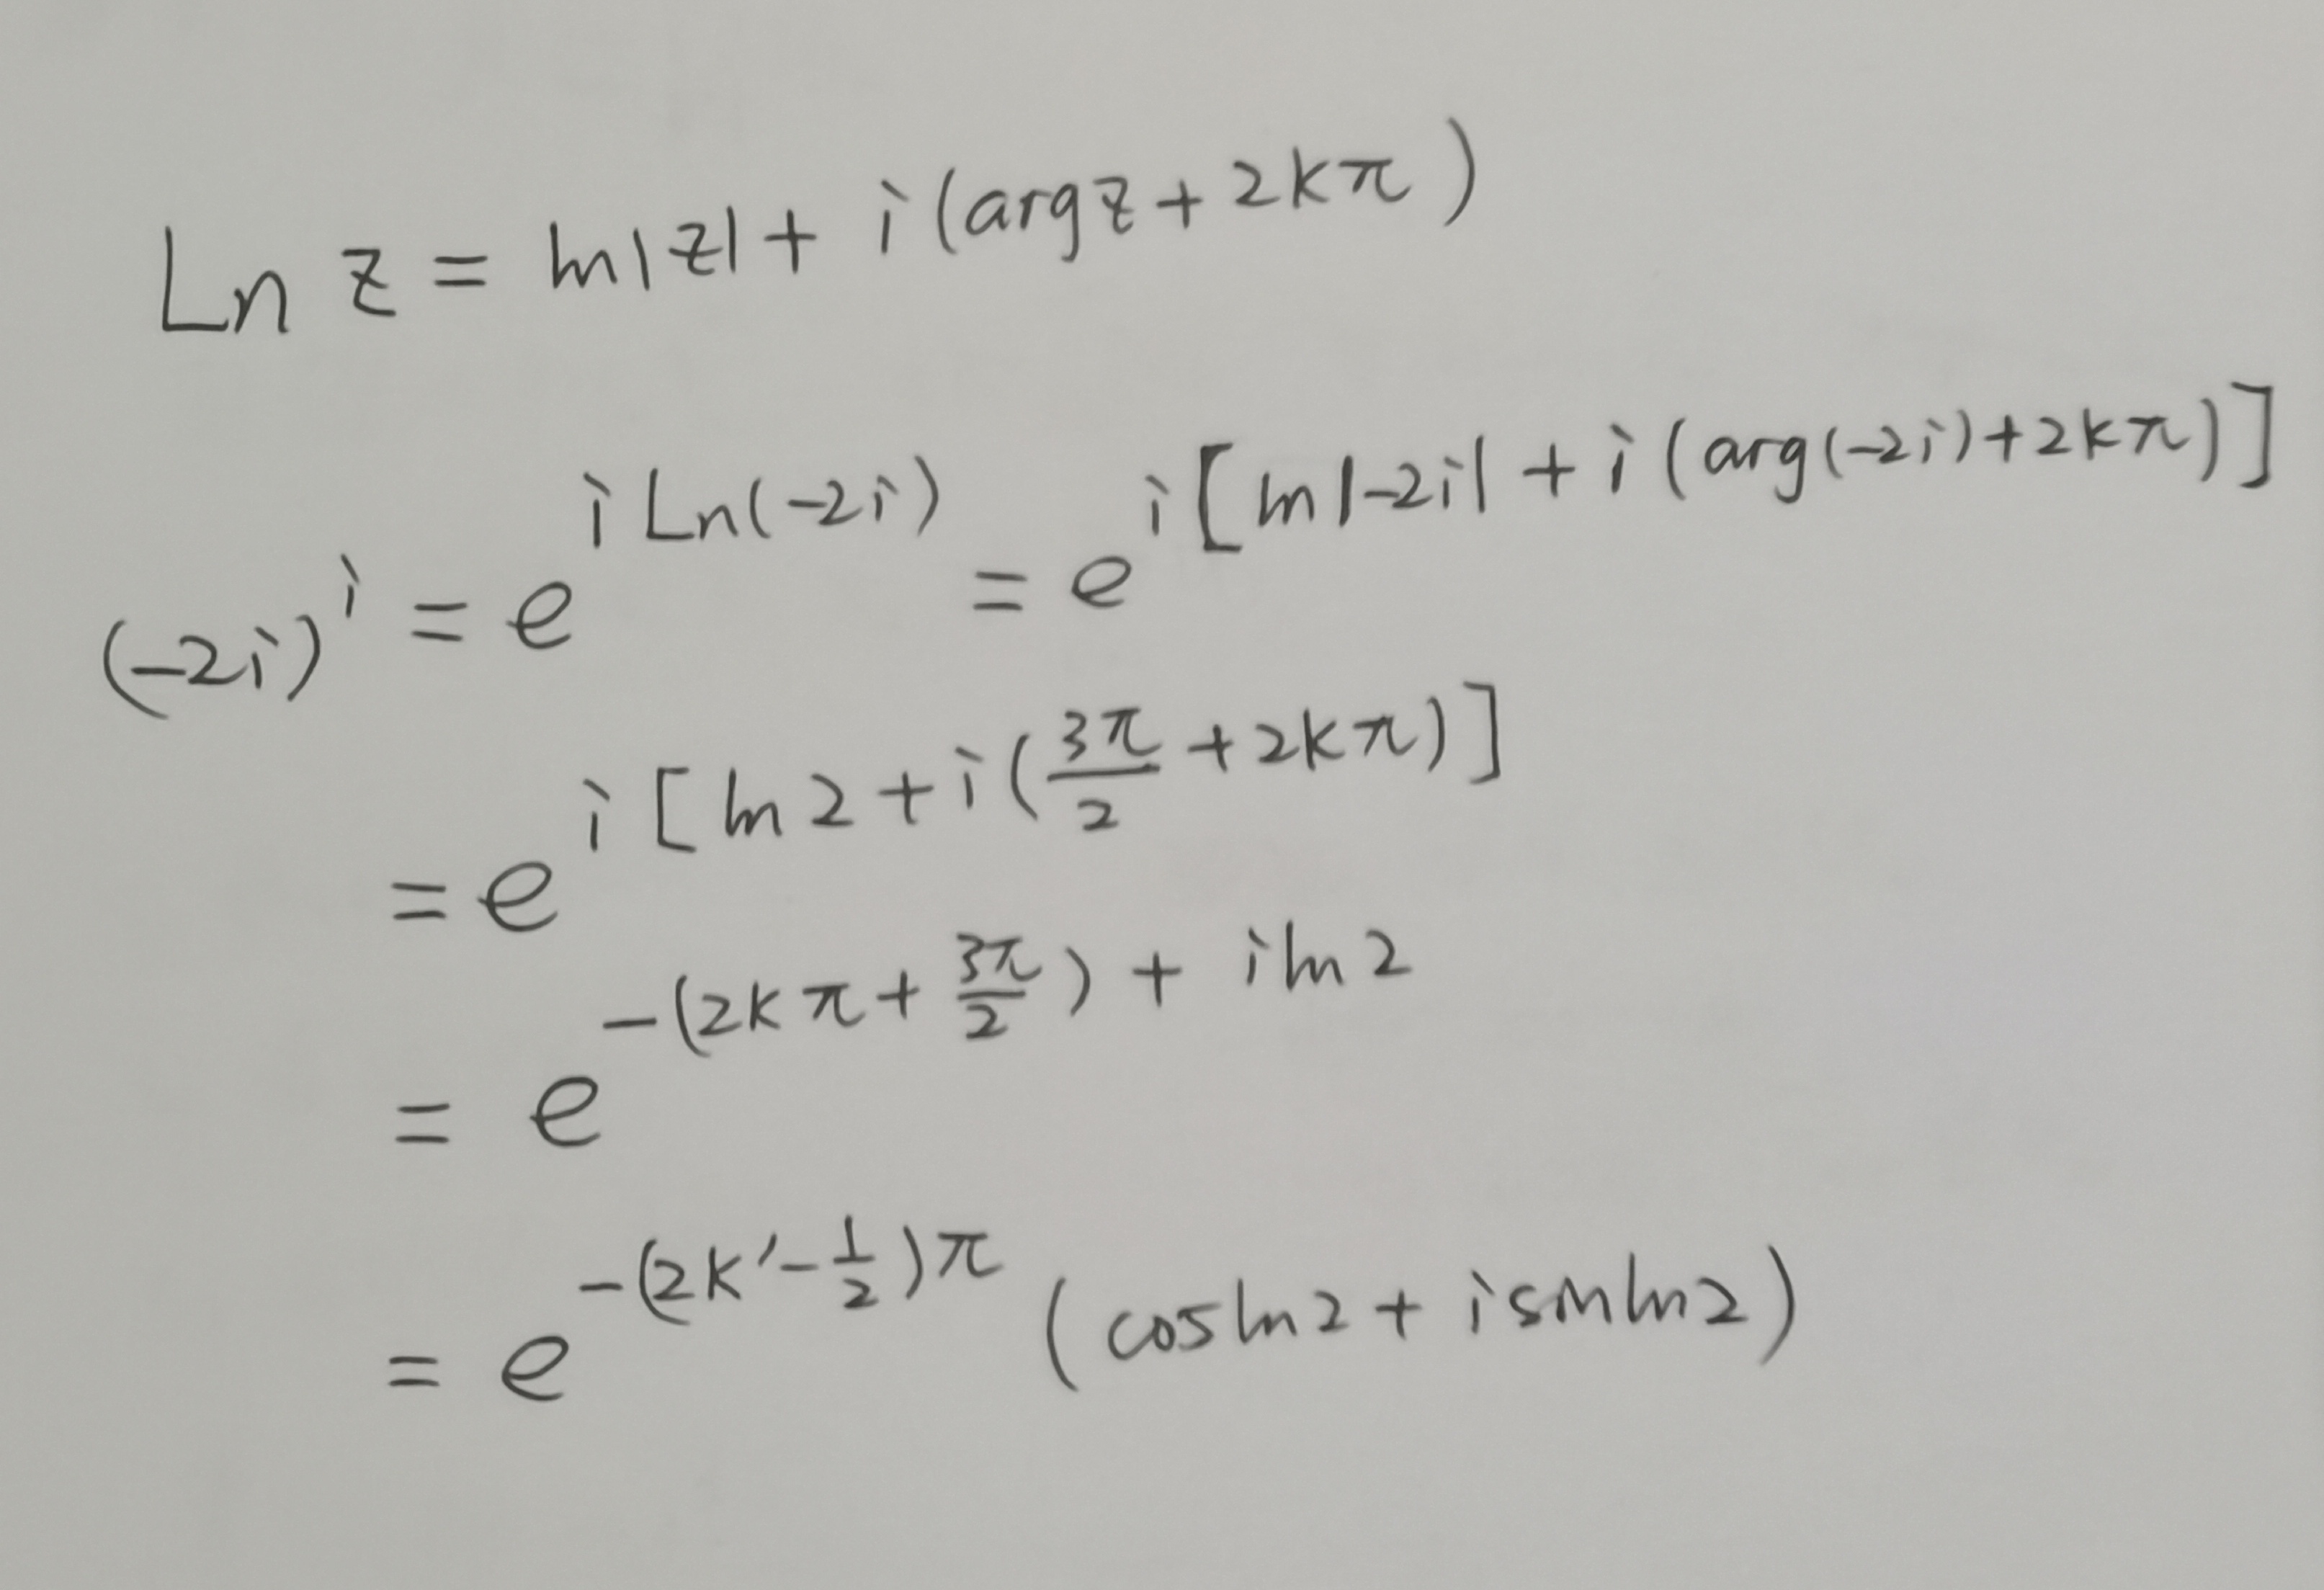 Ln z = ln|z| + i(arg z + 2kπ)
(-2i)^i = e^{i Ln(-2i)} = e^{i[ln|-2i| + i(arg(-2i) + 2kπ)]}
= e^{i[ln2 + i(\frac{3π}{2} + 2kπ)]}
= e^{-(2kπ + \frac{3π}{2}) + i ln2}
= e^{-(2k' - \frac{1}{2})π} (cos ln2 + i sin ln2)